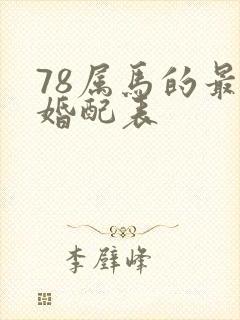 78属马的最
婚配表
李壁峰